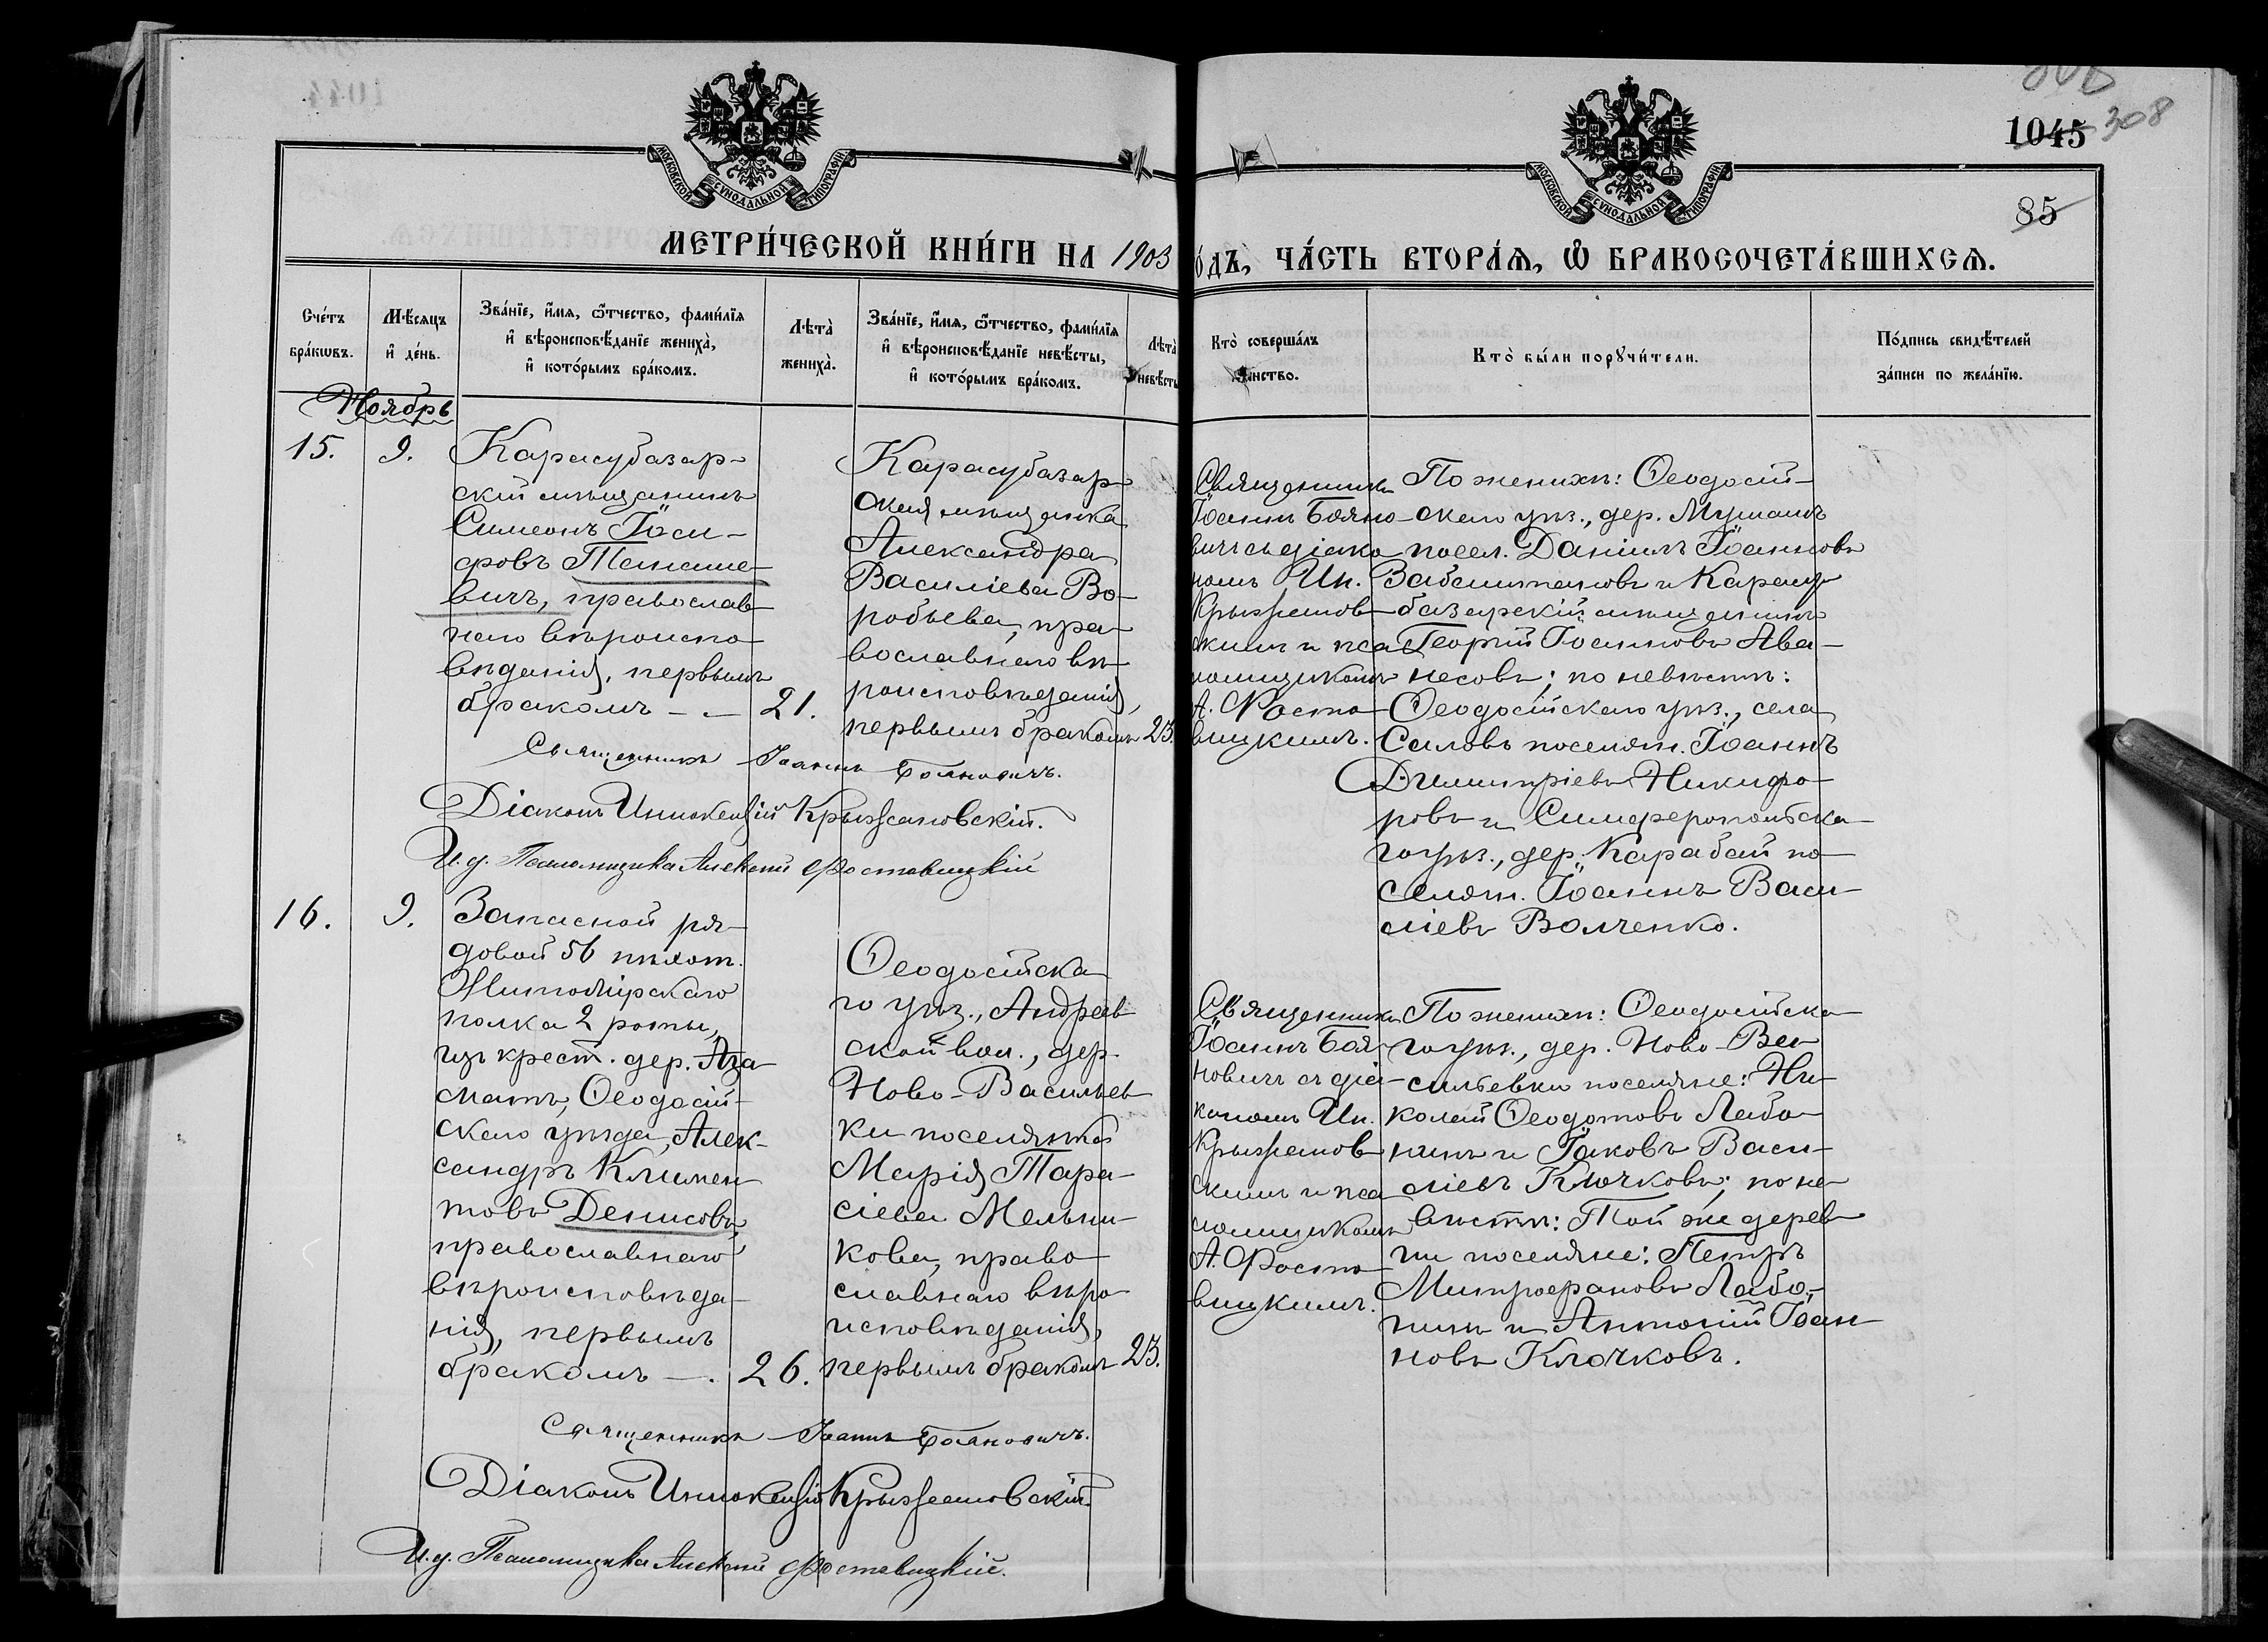 1045
308
85
МОСКОВСКОЙ СѴНОДАЛЬНОЙ ТИПОГРАФІИ
МОСКОВСКОЙ СѴНОДАЛЬНОЙ ТИПОГРАФІИ
МЕТРИ́ЧЕСКОЙ КНИ́ГИ НА 1903
о́дъ, ЧА́СТЬ ВТОРА́Ѧ, Ѡ БРАКОСОЧЕТА́ВШИХСѦ.
Сче́тъ
бра́кѡвъ.
Мѣ́сѧцъ
и҆ де́нь.
Зва́нїе, и҆́мѧ, ѻ҆́тчество, фами́лїѧ
и҆ вѣроисповѣ́данїе жениха̀,
и҆ кото́рымъ бра́комъ.
Лѣта̀
жениха̀.
Зва́нїе, и҆́мѧ, ѻ҆́тчество, фами́лїѧ
и҆ вѣроисповѣ́данїе невѣ́сты,
и҆ кото́рымъ бра́комъ.
Лѣта̀
невѣ́сты
Кто̀ соверша́лъ
та́инство.
Кто̀ бы́ли порꙋчи́тели.
По́дпись свидѣ́телей
за́писи по жела́нїю.
Ноябрь
15.
9.
Карасубазар-
скій мѣщанинъ
Симеонъ Іоси-
фовъ Темеше-
вичъ, православ-
наго вѣроиспо-
вѣданія, первымъ
бракомъ — —
21.
Карасубазар-
ская мѣщанка
Александра
Василіева Во-
робьева, пра-
вославнаго вѣ-
роисповѣданія,
первымъ бракомъ
23.
Священникъ
Іоаннъ Бояно-
вичъ съ діако-
номъ Ин.
Крыжанов-
скимъ и пса-
ломщикомъ
А. Фоста-
вицкимъ.
По женихѣ: Ѳеодосій-
скаго уѣз., дер. Мушашъ
посел. Даніилъ Іоанновъ
Забаштановъ и Карасу-
базарскій мѣщанинъ
Георгій Іоанновъ Ава-
несовъ; по невѣстѣ:
Ѳеодосійскаго уѣз., села
Саловъ поселян. Іоаннъ
Димитріевъ Никифо-
ровъ и Симферопольска-
го уѣз., дер. Карабай по-
селян. Іоаннъ Васи-
ліевъ Волченко.
Священникъ Іоаннъ Бояновичъ.
Діаконъ Иннокентій Крыжановскій.
И.д. Псаломщика Алексѣй Фоставицкій
16.
9.
Запасной ря-
довой 56 пѣхот.
Житомірскаго
полка 2 роты,
изъ крест. дер. Аза-
матъ, Ѳеодосій-
скаго уѣзда, Алек-
сандръ Климен-
товъ Денисовъ,
православнаго
вѣроисповѣда-
нія, первымъ
бракомъ —.
26.
Ѳеодосійска-
го уѣз., Андреев-
ской вол., дер.
Ново-Васильев-
ки поселянка
Марія Тара-
сіева Мельни-
кова, право-
славнаго вѣро-
исповѣданія,
первымъ бракомъ
23.
Священникъ
Іоаннъ Боя-
новичъ съ діа-
кономъ Ин.
Крыжанов-
скимъ и пса-
ломщикомъ
А. Фоста-
вицкимъ.
По женихѣ: Ѳеодосійска-
го уѣз., дер. Ново-Ва-
сильевки поселяне: Ни-
колай Ѳеодотовъ Лабо-
нинъ и Іаковъ Васи-
ліевъ Клочковъ; по не-
вѣстѣ: Той же дерев-
ни поселяне: Петръ
Митрофановъ Лабо-
нинъ и Антоній Іоан-
новъ Клочковъ.
Священникъ Іоаннъ Бояновичъ.
Діаконъ Иннокентій Крыжановскій.
И.д. Псаломщика Алексѣй Фоставицкій.